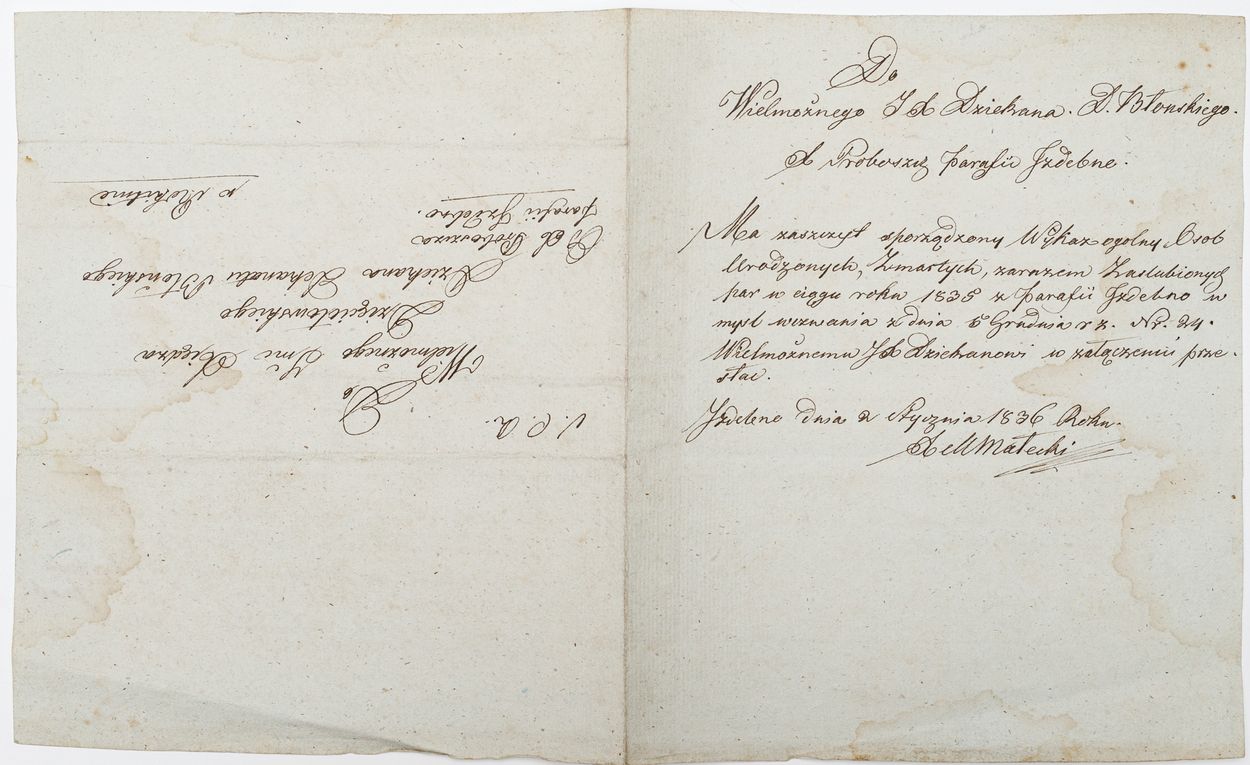 Do
Wielmożnego JX Dziekana. D. Błonskiego.
X Proboszcz parafii Izdebne.
Ma zaszczyt sporządzony Wykaz ogolny Osob
Urodzonych, Zmarłych, zarazem Zaslubionych
par w ciągu roku 1835 z parafii Izdebno w
mysl wezwania z dnia 6 Grudnia r z. Nr. 24.
Wielmożnemu JX Dziekanowi w załączeniu prze-
słac.
Izdebno dnia 2 Stycznia 1836 Roku.
X M Małecki
Do
Wielmożnego Jmć Xiędza
Dzięcielewskiego
Dziekana Dekanatu Błońskiego
Od Proboszcza
parafii Izdebno.
w Rokitnie